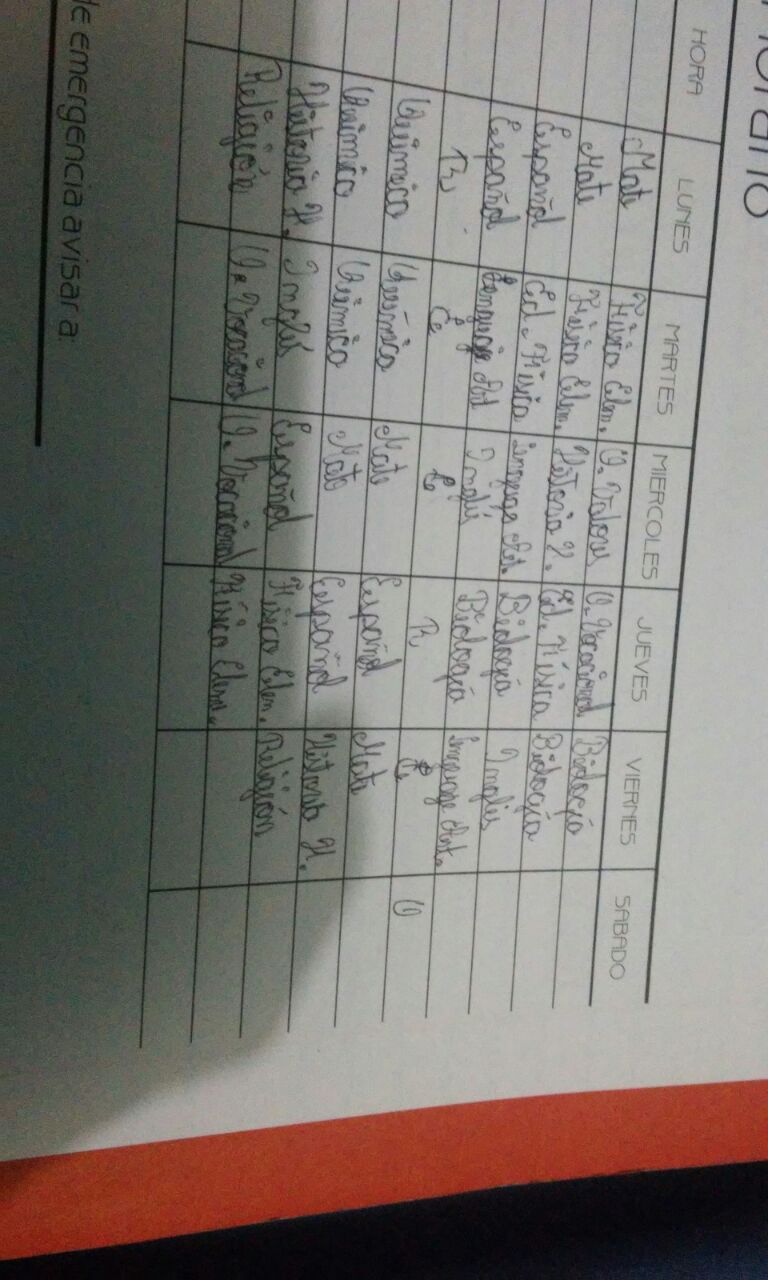 Horario
HORA LUNES MARTES MIERCOLES JUEVES VIERNES SABADO
Mate Física Elem. O. Valores O. Vocacional Biología
Mate Física Elem. Historia Ed. Física Biología
Español Ed. Física Lenguaje Art. Biología Inglés
Español Lenguaje Art Inglés Biología Lenguaje Art.
R R O
Química Química Mate Español Mate
Química Química Mate Español Historia H.
Historia H. Inglés Español Física Elem. Religión
Religión O. Vocacional O. Vocacional Física Elem.
de emergencia avisar a